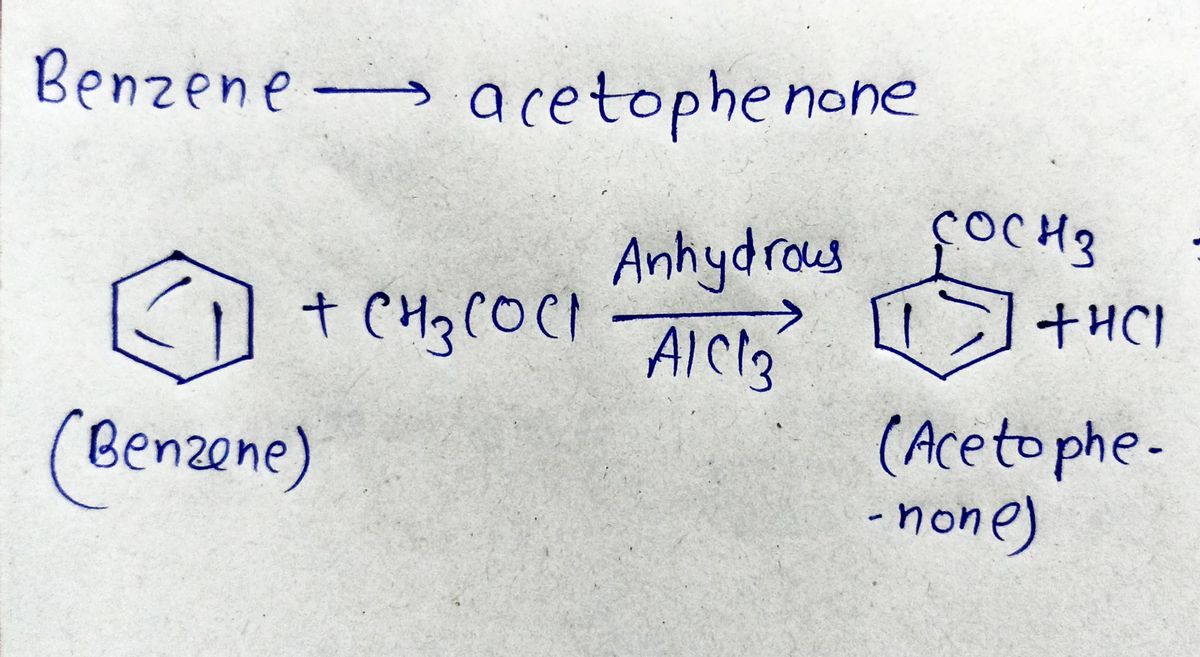 Benzene → acetophenone
COCH3
+ CH3COCl Anhydrous AlCl3 → + HCl
(Benzene) (Acetophe-
-none)